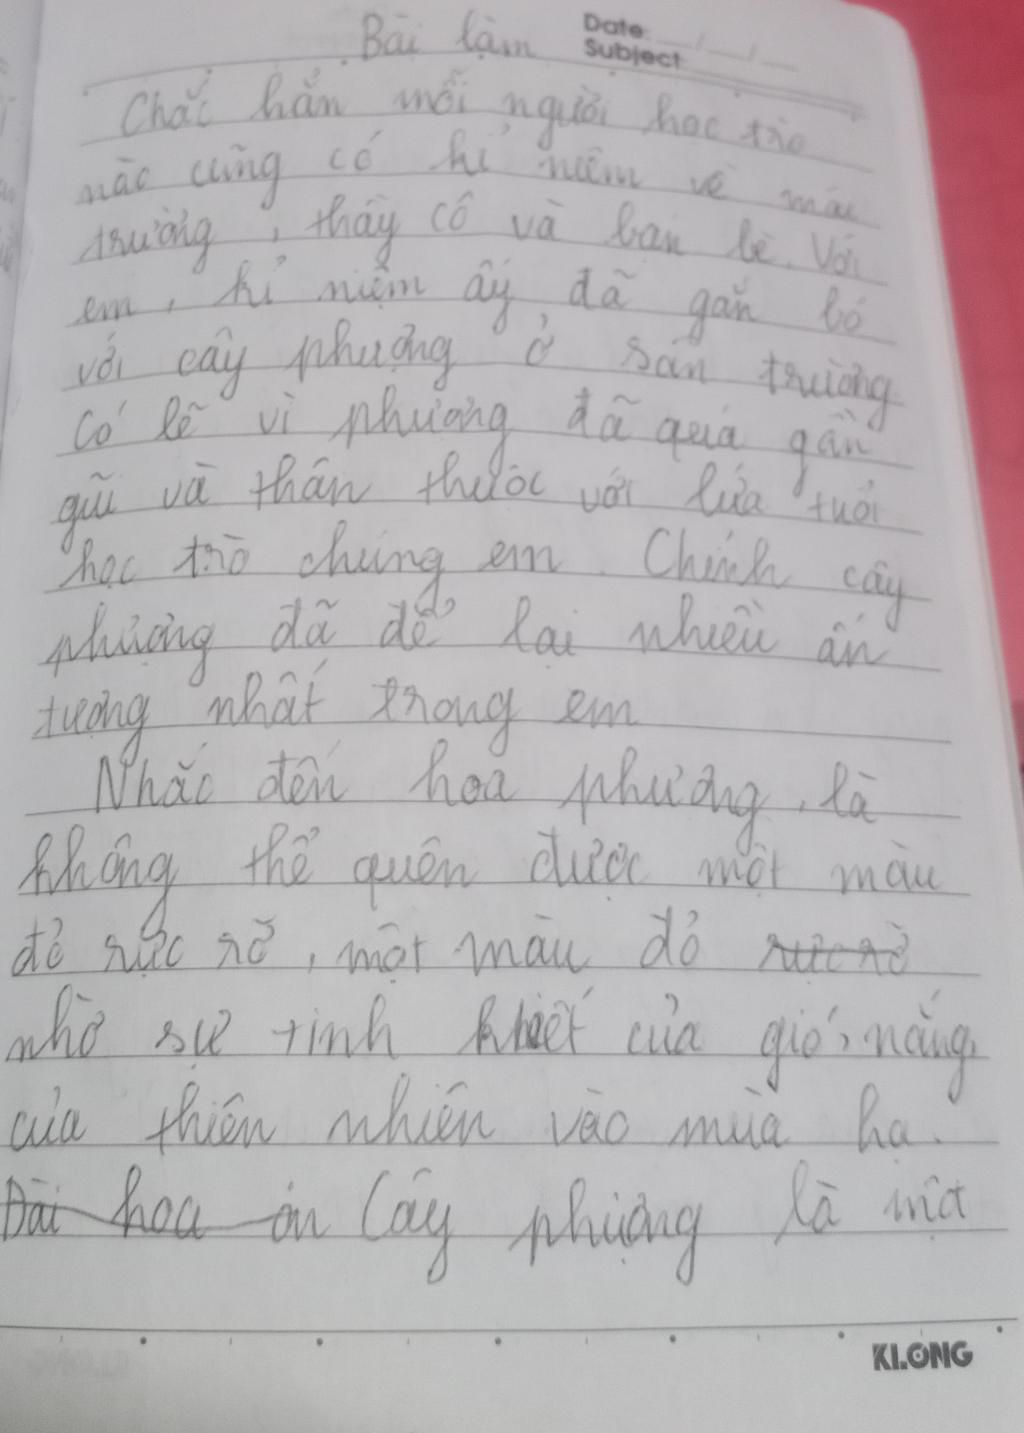 Bài làm
Date
Subject
Chắc hẳn mỗi người học trò
nào cũng có kỉ niệm về mái
trường, thầy cô và bạn bè. Với
em, kỉ niệm ấy đã gắn bó
với cây phượng ở sân trường
Có lẽ vì phượng đã quá gần
gũi và thân thuộc với lứa tuổi
học trò chúng em. Chính cây
phượng đã để lại nhiều ấn
tượng nhất trong em
Nhắc đến hoa phượng, là
không thể quên được một màu
đỏ rực rỡ, một màu đỏ rực rỡ
nhờ sự tinh khiết của gió, nắng,
của thiên nhiên vào mùa hạ.
Đài hoa ôn Cây phượng là một
KLONG